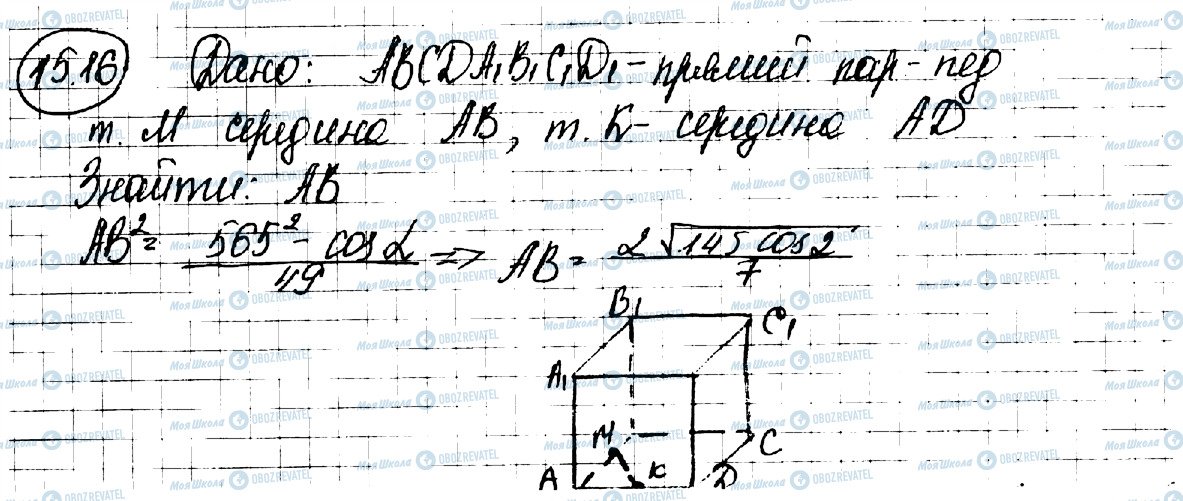 15.16 Дано: ABCDA₁B₁C₁D₁ - прямий пар-пед
т. M середина AB, т. K - середина AD
Знайти: AB
AB² = (565² - cos α) / 49 => AB = 2√(145 cos 2) / 7
B₁
C₁
A₁
M
C
A
K
D